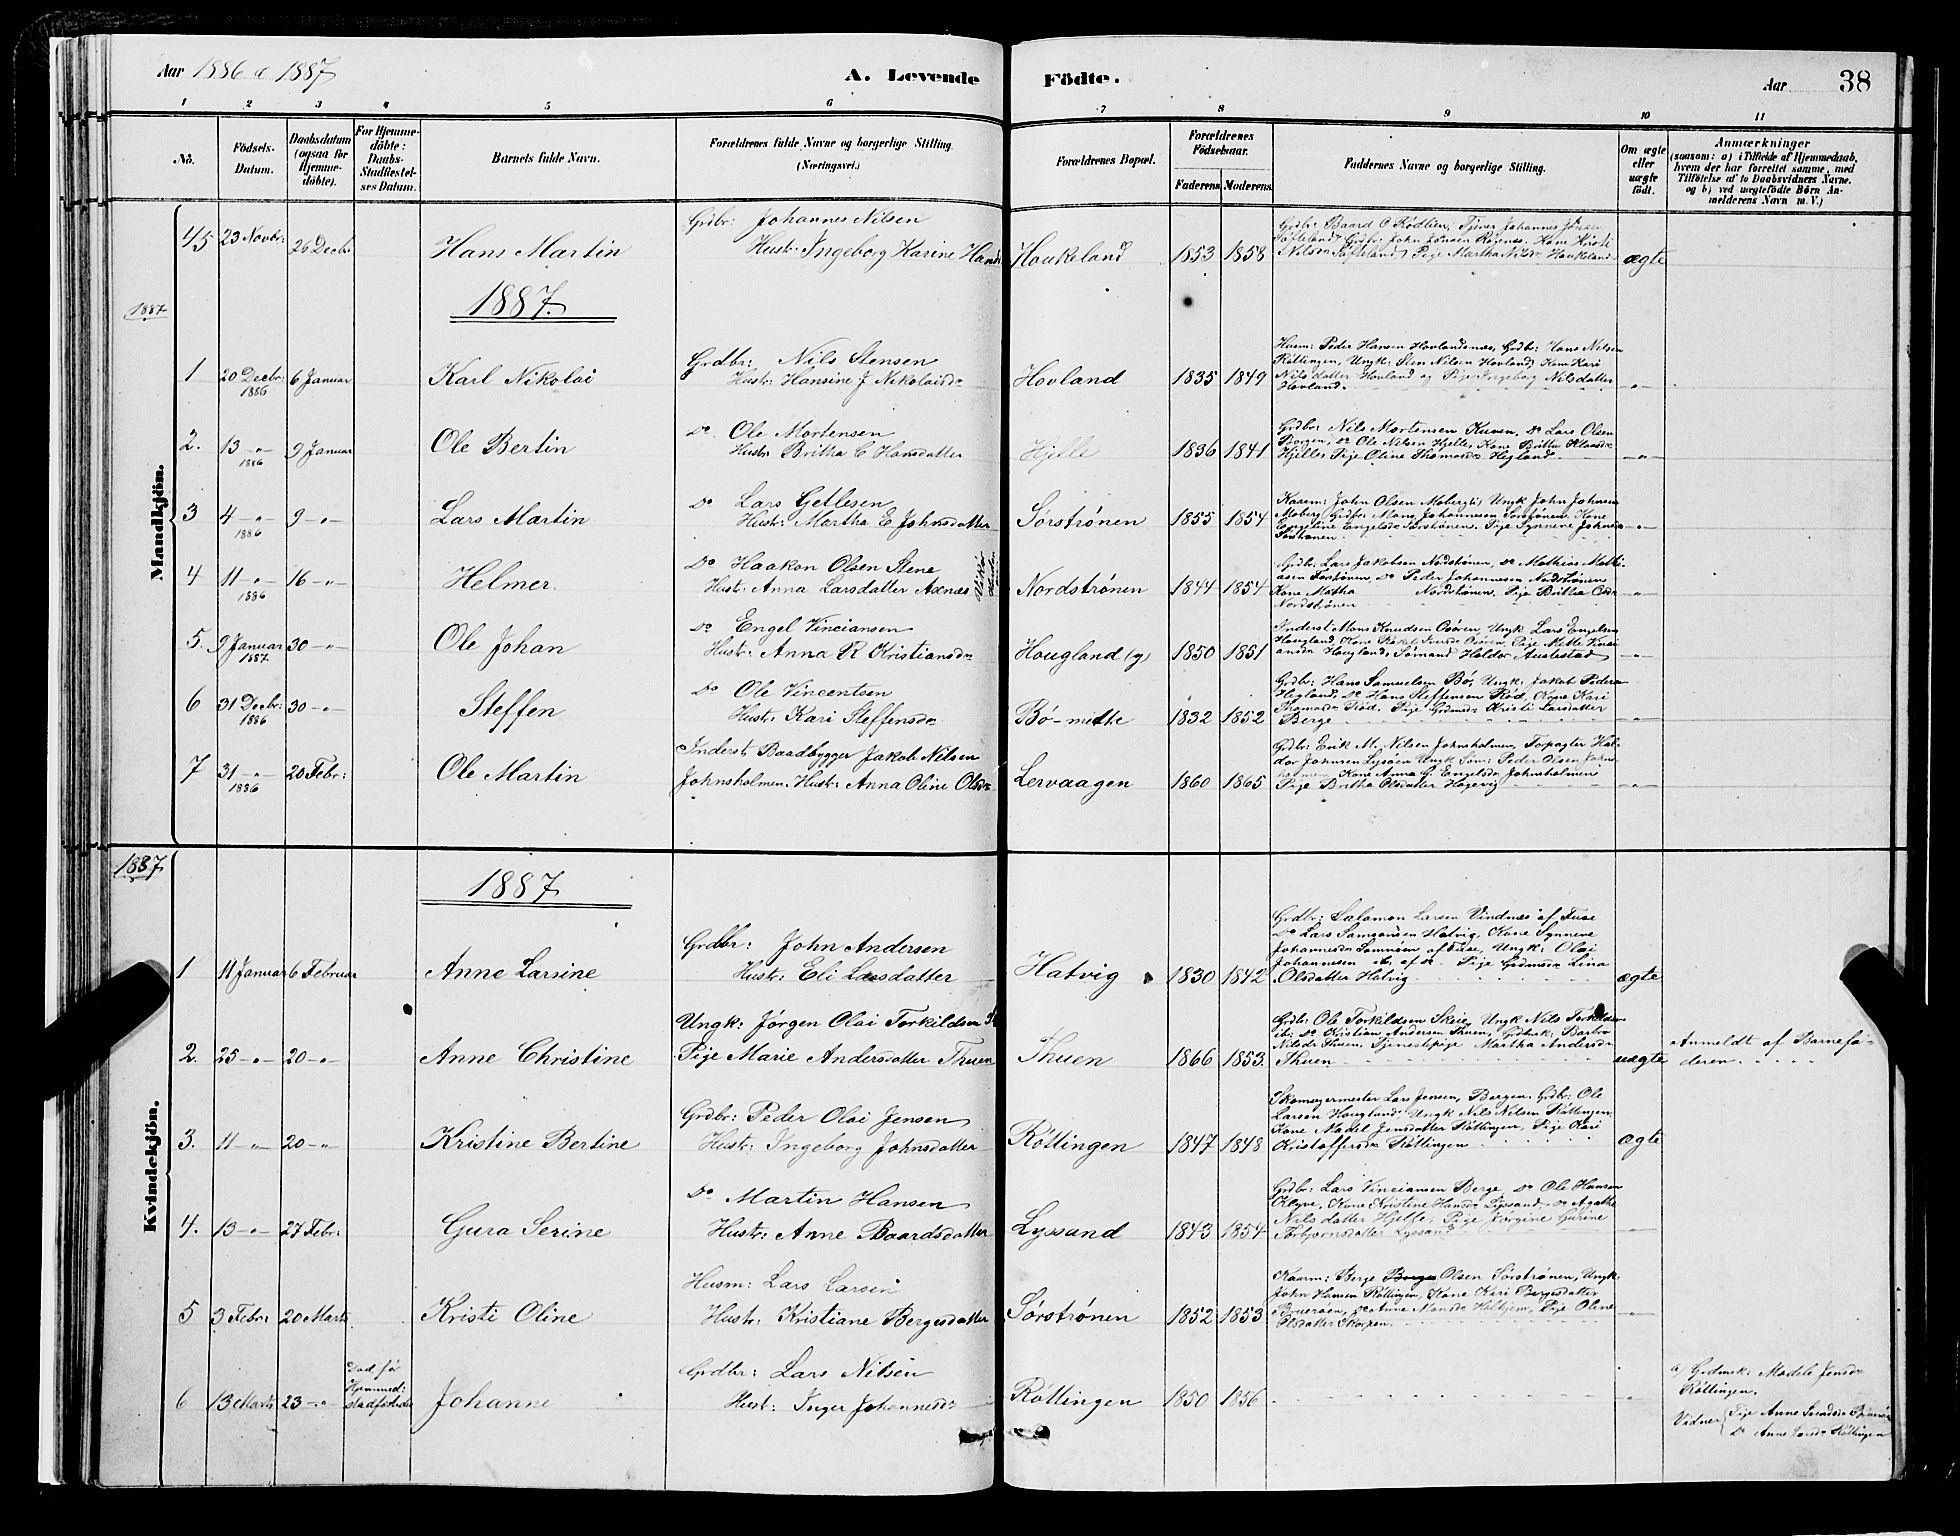 Aar 1886 & 1887
A. Levende Födte.
Aar 38
1 2 3 4 5 6 7 8 9 10 11
No.
Födsels-Datum.
Daabsdatum (ogsaa for Hjemme-döbte).
For Hjemme-döbte: Daabs-Stadfæstel-ses Datum.
Barnets fulde Navn.
Forældrenes fulde Navne og borgerlige Stilling. (Næringsvei.)
Forældrenes Bopæl.
Forældrenes Födselsaar.
Faderens. Moderens.
Faddernes Navne og borgerlige Stilling.
Om ægte eller uægte födt.
Anmærkninger
(saasom: a) i Tilfælde af Hjemmedaab,
hvem der har forrettet samme, med
Tilföielse af to Daabsvidners Navne,
og b) ved uægtefödte Börn An-
melderens Navn m. V.)
Mandkjön.
45 23 Novbr: 26 Decbr Hans Martin
Grdbr: Johannes Nilsen
Hustr: Ingeborg Karine Hansd
Houkeland 1853 1858
Grdbr: Baard O Rödlien, Tjener Johannes
Söfteland, Grdbr: John Johnsen Röenes, Kone Kristi
Nilsdr Söfteland, Pige Martha Nilsdr Haukeland
ægte
1887
1887.
1 20 Decbr: 1886 6 Januar Karl Nikolai
Grdbr: Nils Stensen
Hustr: Hansine J Nikolaisdr
Hovland 1835 1849
Husm: Peder Hansen Hovlandsnes, Grdbr: Hans Nilsen
Röttingen, Ungk: Sten Nilsen Hovland, Kone Kari
Nilsdatter Hovland og Pige Ingeborg Nilsdatter
Hovland.
-"-
2. 13 -"- 1886 9 Januar Ole Bertin
Do Ole Mortensen
Hustr: Britha C Hansdatter
Hjelle 1836 1841
Grdbr: Nils Mortensen Kuven, Do Lars Olsen
Borgen, Do Ole Nilsen Hjelle, Kone Britha Klausdr
Hjelle, Pige Oline Thomasdr Hegland
-"-
3 4 -"- 1886 9 -"- Lars Martin
Do Lars Getlesen
Hustr: Martha E Johnsdatter
Sörströnen 1855 1854
Kaarm: John Olsen Moberg, Ungk John Johnsen
Moberg, Grdbr: Mons Johannesen Sörströnen, Kone
Engeline Engelsdr Sörströnen, Pige Synneve Johnsdr
Sörströnen
-"-
4 11 -"- 1886 16 -"- Helmer.
Do Haakon Olsen Stene
Hustr: Anna Larsdatter Axnes
Nordströnen 1844 1854
Grdbr: Lars Jakobsen Nordströnen, Do Mathias Mathi-
asen Forströnen, Do Peder Johannesen Nordströnen
Kone Martha Nordströnen, Pige Britha Olsdr
Nordströnen
-"-
5. 9 Januar 1887 30 -"- Ole Johan
Do Engel Vinciansen
Hustr: Anna R Kristiansdr
Hougland (y) 1850 1851
Inderst: Mons Knudsen Osören, Ungk Lars Engelsen
Hougland, Kone Rakel Osören, Pige Mette Vinci-
ansdr Hougland, Sömand Haldor Austestad
-"-
6 31 Decbr: 1886 30 -"- Steffen
Do Ole Vincentsen
Hustr: Kari Steffensdr
Bö-midtre 1832 1852
Grdbr: Hans Samuelsen Bö, Ungk: Jakob Pedersen
Hegland, Do Hans Steffensen Röd, Kone Kari
Thomasdr Röd, Pige Grdmdr Kristi Larsdatter
Berge
-"-
7 31 -"- 1886 20 Febr: Ole Martin
Inderst, Baadbygger Jakob Nilsen
Johnsholmen, Hustr: Anna Oline Olsdr
Lervaagen 1860 1865
Grdbr: Erik M. Nilsen Johnsholmen, Forpagter Hal-
dor Johnsen Lysöen Ungk Söm: Peder Olsen Johns-
holmen, Kone Anna G. Engelsdr Johnsholmen
Pige Britha Olsdatter Hagevig
-"-
Kvindekjön.
1887
1887
1 11 Januar 6 Februar Anne Larsine
Grdbr: John Andersen
Hustr: Eli Larsdatter
Hatvig 1830 1842
Grdbr: Salomon Larsen Vindnæs af Fuse
Do Lars Samsonsen Hatvig, Kone Synneve
Johannesdr Samnöen af Fuse, Ungk: Olai
Johannesen af Do Pige Grdmdr Lina
Olsdatter Hatvig
ægte
2. 25 -"- 20 -"- Anne Christine
Ungk: Jörgen Olai Torkildsen
Pige Marie Andersdatter Thuen
Thuen 1866 1853.
Grdbr: Ole Torkildsen Skeie, Ungk Nils Torkildsen
ibr: Do Kristian Andersen Thuen, Grdbrk: Barbro
Nilsdr Thuen, Tjenestepige Martha Andersdr
Thuen
uægte
Anmeldt af Barnefa-
deren.
3. 11 -"- 20 -"- Kristine Bertine
Grdbr: Peder Olai Jensen
Hustr: Ingeborg Johnsdatter
Röttingen 1847 1848
Skomagermester Lars Jensen, Bergen, Grdbr: Ole
Larsen Hougland, Ungk Nils Nilsen Röttingen
Kone Madel Jensdatter Röttingen, Pige Kari
Kristoffersdr Röttingen
ægte
4. 13 -"- 27 Febr: Gura Serine
Do Martin Hansen
Hustr: Anne Baardsdatter
Lyssand 1843 1854
Grdbr: Lars Vinciansen Berge, Do Ole Hansen
Klyve, Kone Kristine Hansdr Lyssand, Do Agathe
Nilsdatter Hjelle, Pige Jörgine Gurine
Torbjörnsdatter Lyssand
-"-
5 3 Febr: 20 Marts Kristi Oline
Husm: Lars Larsen
Hustr: Kristiane Bergesdatter
Sörströnen 1852 1853
Kaarm: Berge Olsen Sörströnen, Ungk:
John Hansen Röttingen, Kone Kari Bergesdatter
Bruaröen, Do Anne Monsdr Helhjem, Pige Oline
Olsdatter Skorpen
-"-
6 13 Marts 23 -"- Död för Hjemmed: stadfæstedes Johanne
Grdbr: Lars Nilsen
Hustr: Inger Johannesdr
Röttingen 1850 1856
-"-
a) Grdmsk: Madele Jensdr
Röttingen.
Vidner Pige Anne
Do Anne Röttingen